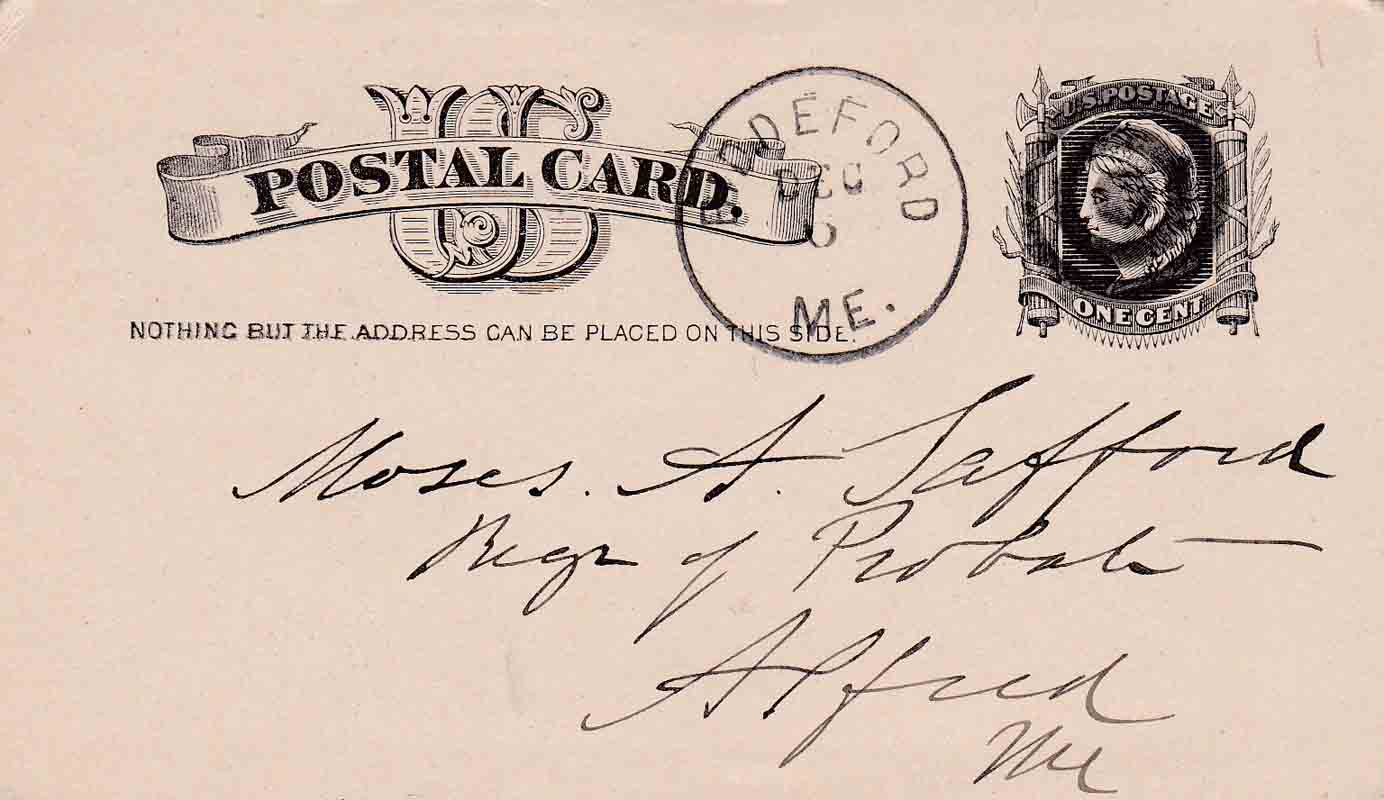 US
POSTAL CARD.
U.S. POSTAGE
ONE CENT
DEFORD
DEC
6
ME.
NOTHING BUT THE ADDRESS CAN BE PLACED ON THIS SIDE.
Moses. A. Safford
Regr of Probate
Alfred
Me